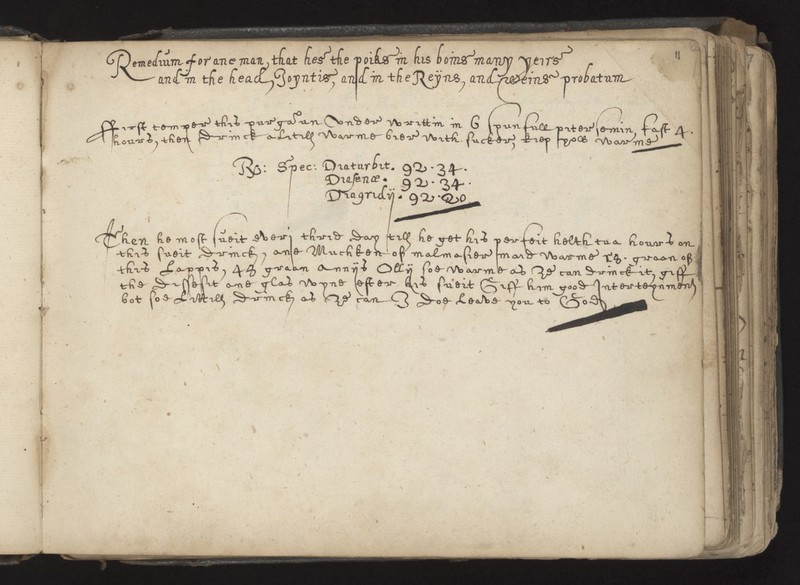 11
Remedium for ane man, that hes the poiks in his boins many yeirs
and in the head, Joyntis, and in the Reÿns, and veins probatum
First temper this purgaun under writtin in 6 spunfull piter semin, fast 4.
hours, then drinck a litill warme bier with sucker, kiep warme
Rx: Spec: Diaturbit. 92. 34.
Diasenæ. 92. 34.
Diagridÿ. 92. 20
Then he most sueit everi thrid day till he get his perfeit helth tua hours on
this sueit drinck, ane Muchken of malmasier maid warme 13. graan of
this Lappis, 48 graan Annÿs Ollÿ soe warme as ze can drinck it, giff
the dissesit ane glas wyne efter his sueit Giff him good Interteynment
bot soe Littill drinck as ze can I doe leave you to God